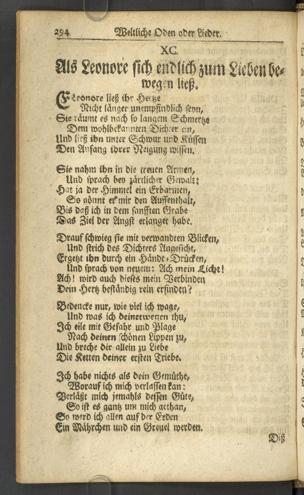 294 Weltliche Oden oder Lieder.
XC.
Als Leonore sich endlich zum Lieben be-
wegen ließ.
Leonore ließ ihr Hertze
Nicht länger unempfindlich seyn,
Sie räumt es nach so langem Schmertze
Dem wohlbekannten Dichter ein,
Und ließ ihn unter Schwur und Küssen
Den Anfang ihrer Neigung wissen.
Sie nahm ihn in die treuen Armen,
Und sprach bey zärtlicher Gewalt:
Hat ja der Himmel ein Erbarmen,
So gönnt er mir den Auffenthalt,
Biß daß ich in dem sanfften Grabe
Das Ziel der Angst erlanget habe.
Drauf schwieg sie mit verwandten Blicken,
Und strich des Dichters Angesicht,
Ergetzt ihn durch ein Hände-Drücken,
Und sprach von neuem: Ach mein Licht!
Ach! wird auch dieses mein Verbinden
Dein Hertz beständig rein erfinden?
Bedencke nur, wie viel ich wage,
Und was ich deinetwegen thu,
Ich eile mit Gefahr und Plage
Nach deinen schönen Lippen zu,
Und breche dir allein zu Liebe
Die Ketten deiner ersten Triebe.
Ich habe nichts als dein Gemüthe,
Worauf ich mich verlassen kan:
Verläßt mich jemahls dessen Güte,
So ist es gantz um mich gethan,
So werd ich allen auf der Erden
Ein Mährchen und ein Greuel werden.
Diß